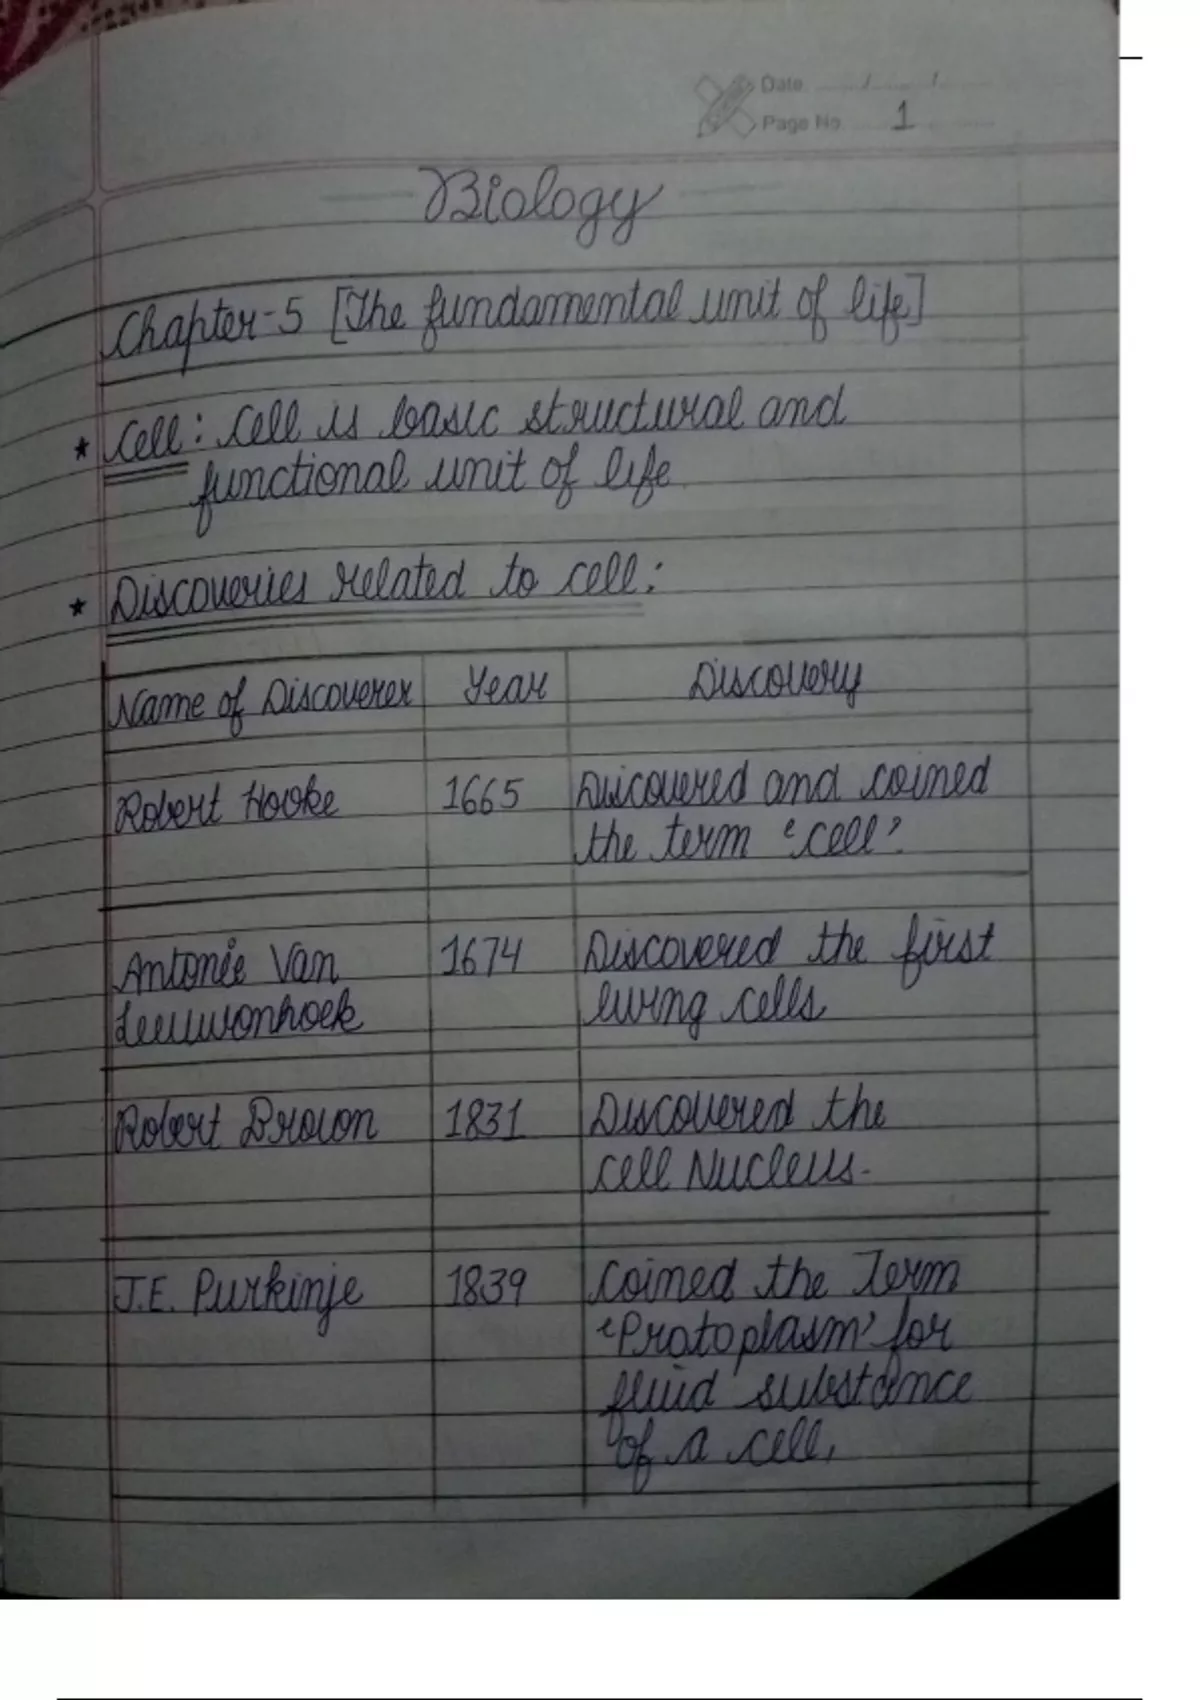 Date ....... / ....... / .......
Page No. 1
Biology
Chapter-5 [The fundamental unit of life]
★ Cell: Cell is basic structural and
functional unit of life
★ Discoveries related to cell:
Name of Discoverer Year Discovery
Robert Hooke 1665 Discovered and coined
the term 'cell'.
Antonie Van 1674 Discovered the first
Leeuwonhoek living cells
Robert Brown 1831 Discovered the
cell Nucleus.
J.E. Purkinje 1839 Coined the Term
'Protoplasm' for
fluid substance
of a cell.